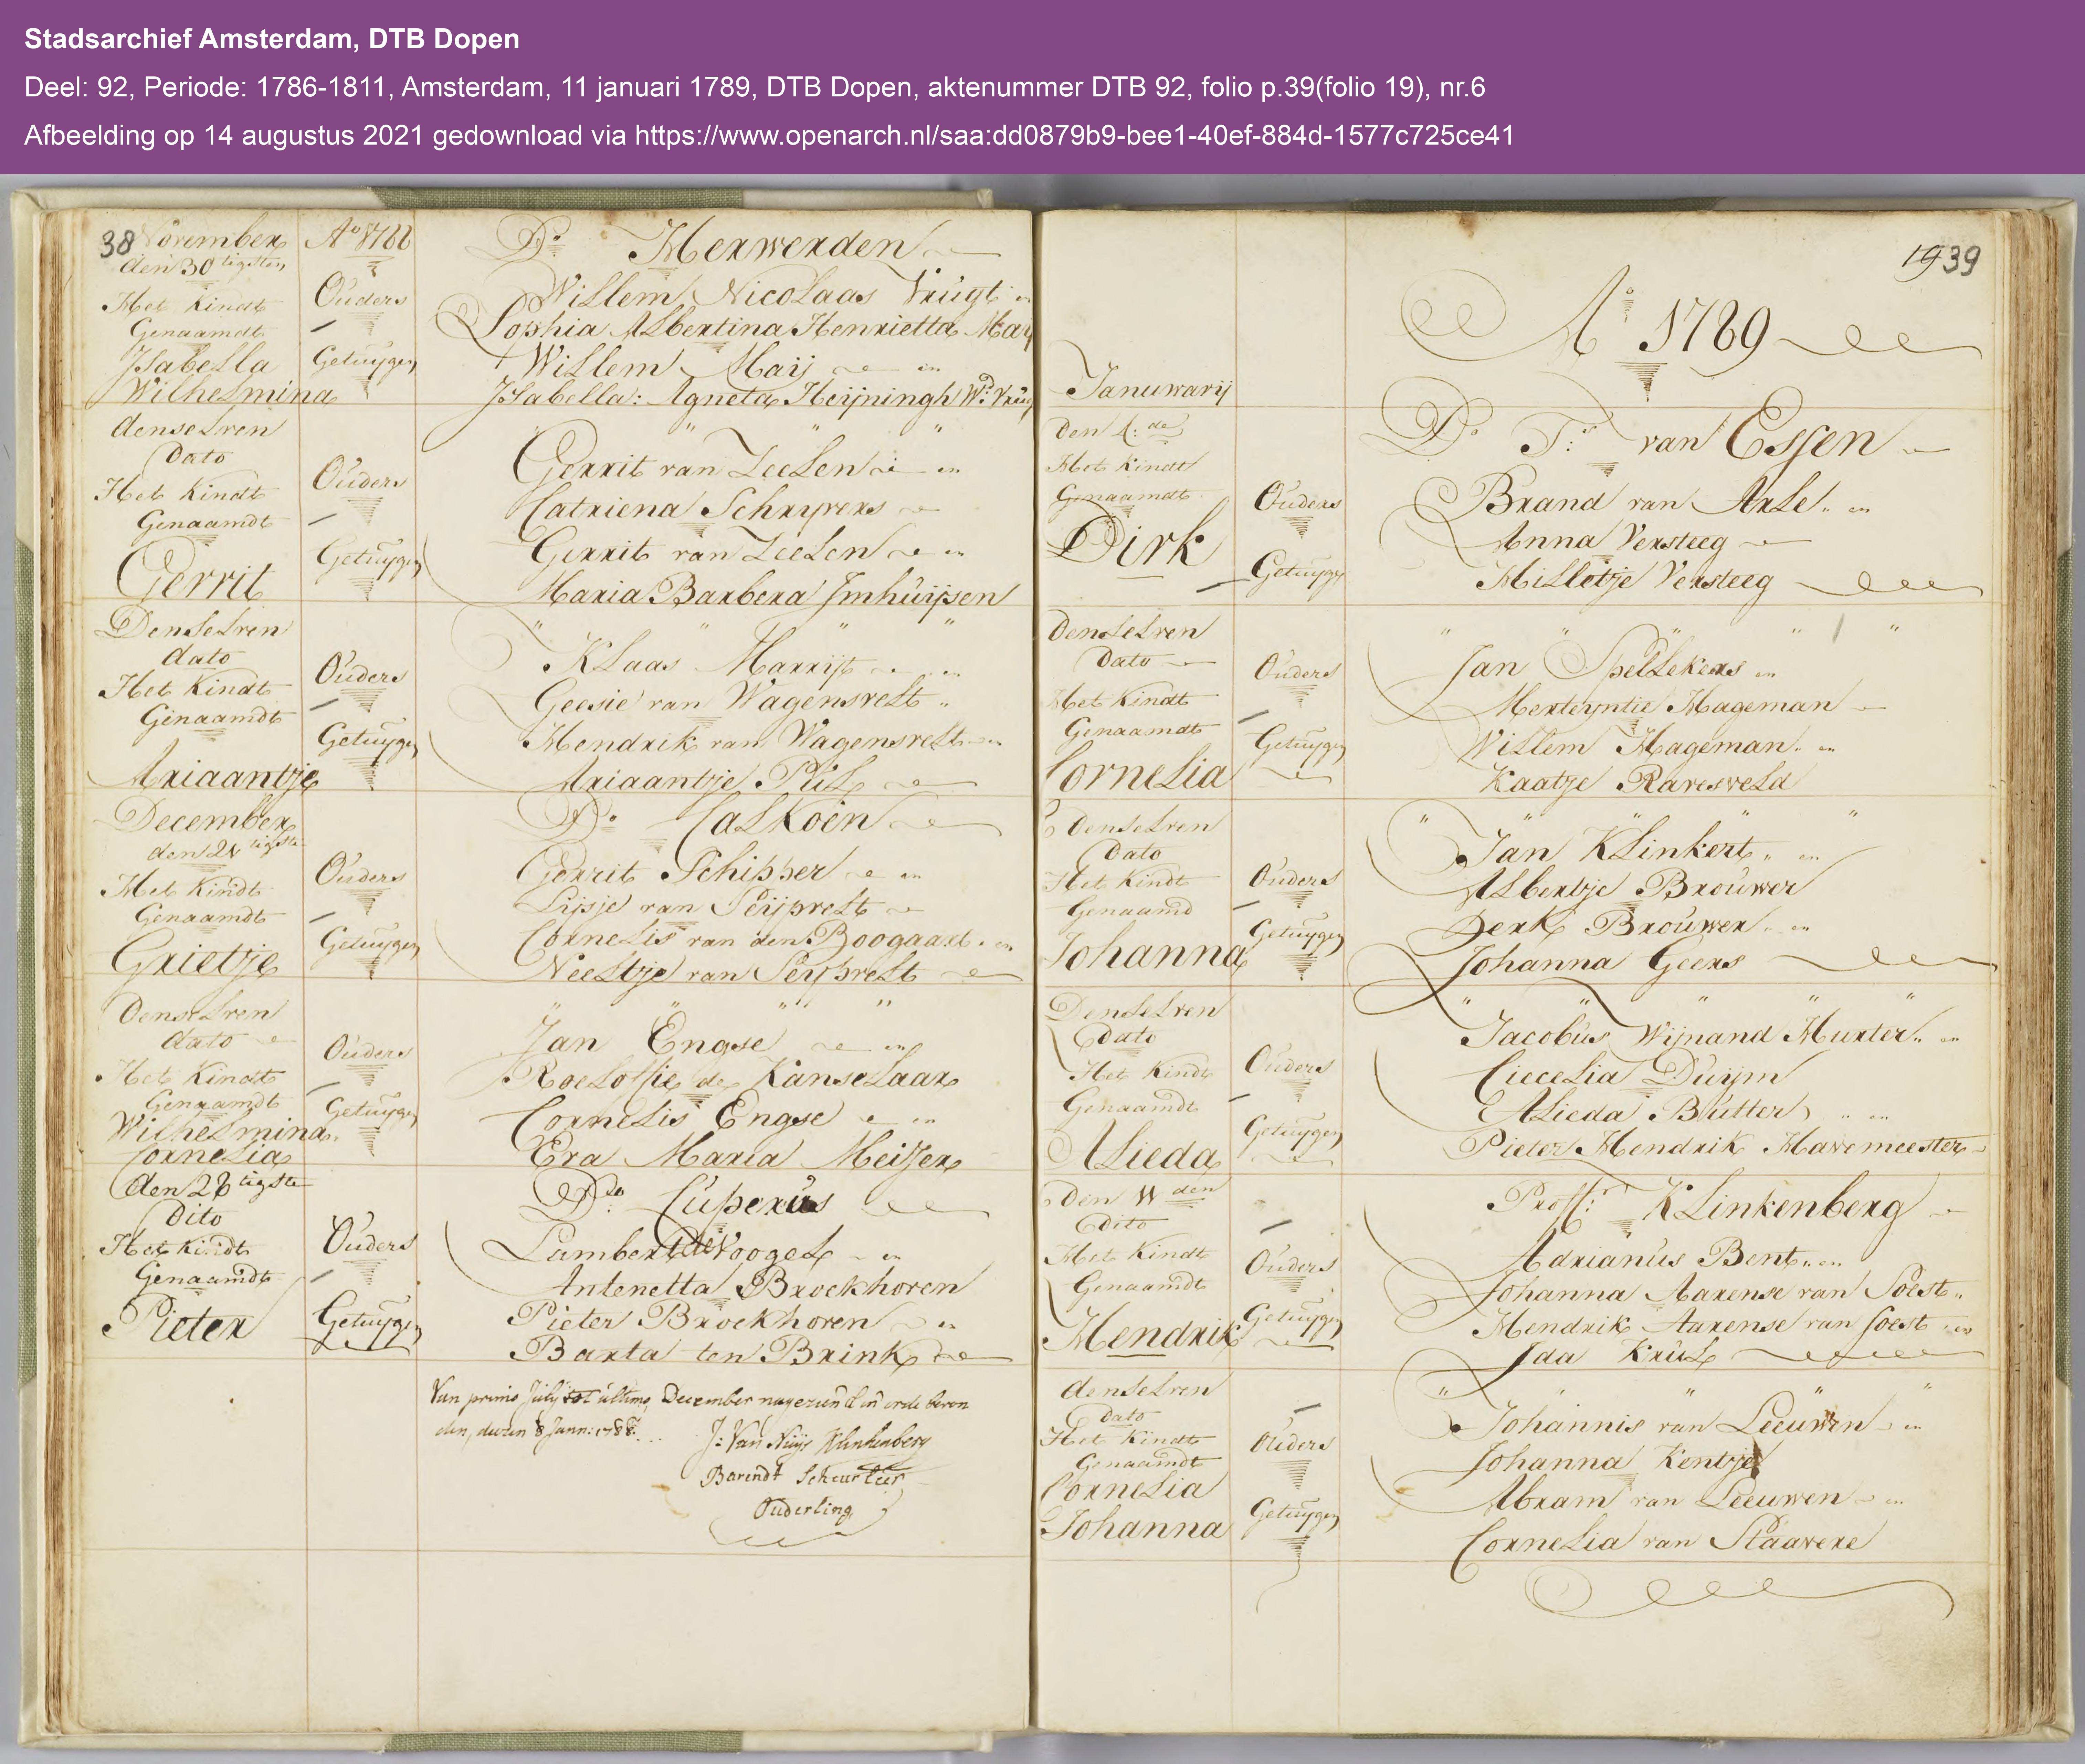 Stadsarchief Amsterdam, DTB Dopen
Deel: 92, Periode: 1786-1811, Amsterdam, 11 januari 1789, DTB Dopen, aktenummer DTB 92, folio p.39(folio 19), nr.6
Afbeelding op 14 augustus 2021 gedownload via https://www.openarch.nl/saa:dd0879b9-bee1-40ef-884d-1577c725ce41
38 November Ao 1788 Ds Herwerden
den 30 tigsten
Het Kindt Ouders Willem Nicolaas Vrugt en
Genaamdt Sophia Albertina Henrietta May
Isabella Getuygen Willem Maij en
Wilhelmina Isabella: Agneta Heijningh Wd: Vrug
denselven
Dato Gerrit van Zeelen en
Het Kindt Ouders Catriena Schryvers
Genaamdt Gerrit van Zeelen en
Gerrit Getuygen Maria Barbera Imhuijsen
Denselven
dato Klaas Marrijt en
Het Kindt Ouders Geesie van Wagensvelt
Genaamdt Hendrik van Wagensvelt en
Ariaantje Getuygen Ariaantje Pul
December Ds Calkoen
den 21 tigste
Het Kindt Ouders Gerrit Schipper en
Genaamdt Lijsje van Seijpvelt
Grietje Getuygen Cornelis van den Boogaart en
Neeltje van Seijpvelt
Denselven
dato Jan Engse en
Het Kindt Ouders Roelofsie de Kanselaar
Genaamdt Getuygen Cornelis Engse en
Wilhelmina Eva Maria Meijer
Cornelia
den 28 tigste Ds Cuperus
Dito
Het Kindt Ouders Lambert de Voogel en
Genaamdt Antenetta Broekhoven
Pieter Getuygen Pieter Broekhoven en
Barta ten Brink
Van primo July tot ultimo December nagezien & in orde bevon
den, dezen 8 Jann: 1788.
J: Van Nuys Klinkenberg
Barendt Scheurleer
Ouderling
19 39
Ao 1789
Januwarij
Den 4: de Ds Tr: van Essen
Het Kindt
Genaamdt Ouders Brand van Arle en
Dirk Anna Versteeg
Getuyge Hilletje Versteeg
Denselven
Dato Ouders Jan Spellekers en
Het Kindt Merteyntie Hageman
Genaamdt Getuygen Willem Hageman en
Cornelia Kaatje Ravesveld
Denselven
Dato Jan Klinkert en
Het Kindt Ouders Albertje Brouwer
Genaamd Getuygen Derk Brouwer en
Johanna Johanna Geers
Denselven
Dato Jacobus Wijnand Murter en
Het Kindt Ouders Ciecelia Duijm
Genaamdt Alieda Butter en
Alieda Getuygen Pieter Hendrik Havemeester
Den 11 den Proffr: Klinkenberg
dito
Het Kindt Ouders Adrianus Bent en
Genaamdt Johanna Aarense van Soest
Hendrik Getuygen Hendrik Aarense van Soest en
Ida Krul
denselven
Dato Johannis van Leeuwen en
Het Kindt Ouders Johanna Kentje
Genaamdt
Cornelia Getuygen Abram van Leeuwen en
Johanna Cornelia van Staavere